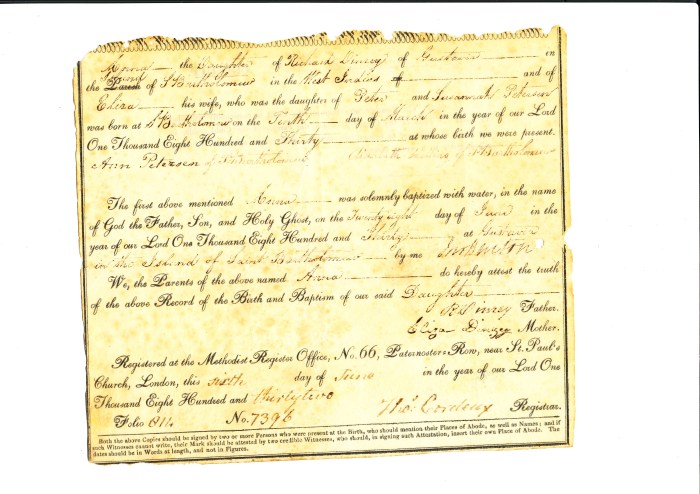 Anna the Daughter of Richard Dinzey of Gustavia in
the Parish Island of St Bartholomew in the West Indies of and of
Eliza his wife, who was the daughter of Peter and Susannah Petersen
was born at St Bartholomew on the Tenth day of March in the year of our Lord
One Thousand Eight Hundred and Thirty at whose birth we were present.
Ann Petersen of St Bartholomew of St Bartholomew
The first above mentioned Anna was solemnly baptized with water, in the name
of God the Father, Son, and Holy Ghost, on the Twenty eight day of June in the
year of our Lord One Thousand Eight Hundred and Thirty at Gustavia
in the Island of Saint Bartholomew by me
We, the Parents of the above named Anna do hereby attest the truth
of the above Record of the Birth and Baptism of our said Daughter
R Dinzey Father.
Eliza Dinzey Mother.
Registered at the Methodist Register Office, No. 66, Paternoster-Row, near St. Paul's
Church, London, this sixth day of June in the year of our Lord One
Thousand Eight Hundred and thirty two
Folio No. 7396 Thos. Cordeux Registrar.
Both the above Copies should be signed by two or more Persons who were present at the Birth, who should mention their Places of Abode, as well as Names; and if
such Witnesses cannot write, their Mark should be attested by two credible Witnesses, who should, in signing such Attestation, insert their own Place of Abode. The
dates should be in Words at length, and not in Figures.